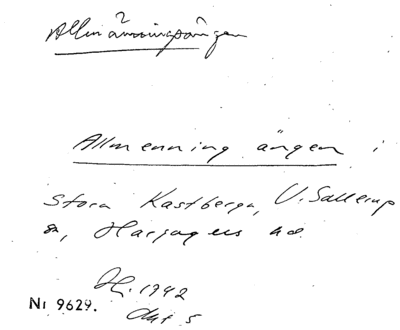 Allmänningsängen
Allmenning ängen i
Stora Kastberga, V. Sallerup
sn, Harjagers hd.
H. 1942
akt 5
Nr 9629.